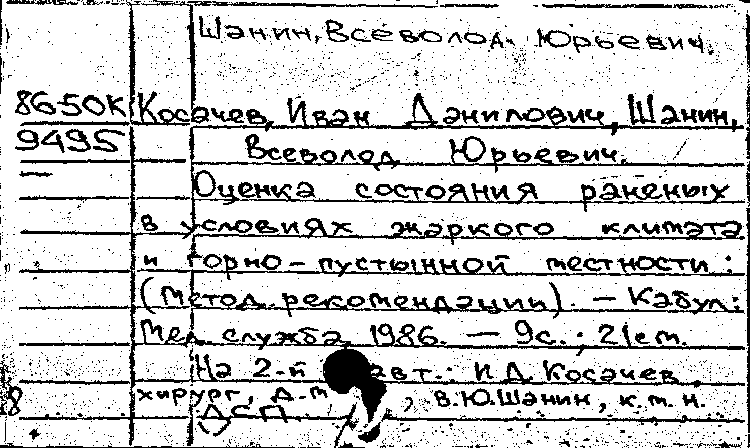 Шанин, Всеволод Юрьевич.
86-50К Косачев, Иван Данилович, Шанин,
9495 Всеволод Юрьевич.
— Оценка состояния раненых
в условиях жаркого климата
и горно-пустынной местности :
(Метод. рекомендации). — Кабул:
Мед. служба, 1986. — 9с.; 21см.
На 2-й авт.: И.Д. Косачев,
хирург, д.м , В.Ю. Шанин, к.м.н.
8 ДСП.